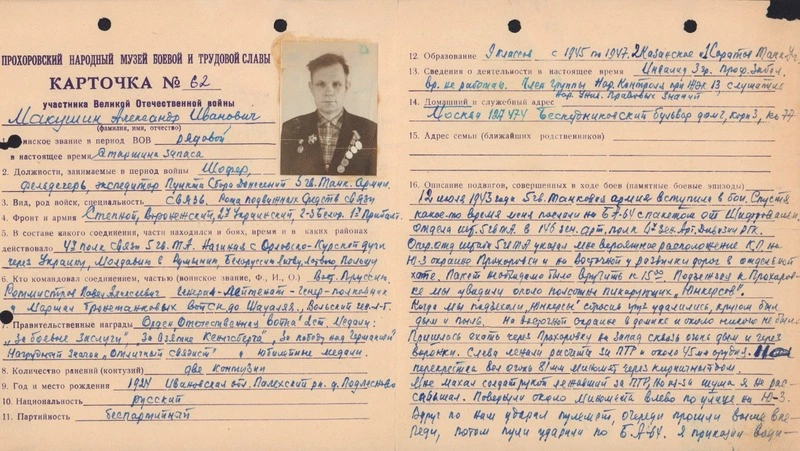 ПРОХОРОВСКИЙ НАРОДНЫЙ МУЗЕЙ БОЕВОЙ И ТРУДОВОЙ СЛАВЫ
КАРТОЧКА № 62
участника Великой Отечественной войны
Макушин Александр Иванович
(фамилия, имя, отчество)
1. Воинское звание в период ВОВ рядовой
в настоящее время Старшина запаса
2. Должности, занимаемые в период войны Шофер,
фельдегерь, экспедитор Пункта Сбора Донесений 5 гв. Танк. Армии.
3. Вид, род войск, специальность связь. Рота подвижных средств связи
4. Фронт и армия Степной, Воронежский, 2й Украинский, 2-3 Белор. 1й Прибалт.
5. В составе какого соединения, части находился в боях, время и в каких районах
действовало 4й полк связи 5 гв. Т.А. Начиная с Орловско-Курской дуги
через Украину, Молдавию, Румынию, Белоруссию, Литву, Польшу
6. Кто командовал соединением, частью (воинское звание, Ф., И., О.) Вост. Пруссии.
Ротмистров Павел Алексеевич генерал-лейтенант - генер-полковник
и Маршал бронетанковых войск до Шауляя, Вольский ген.-л-т.
7. Правительственные награды Орден Отечественная война 2 ст. Медали:
"За боевые заслуги", За взятие Кенигсберга, За победу над Германией
Нагрудный значок "Отличный связист" и юбилейные медали.
8. Количество ранений (контузий) две контузии
9. Год и место рождения 1924 Ивановская обл. Палехский рн. д.
10. Национальность русский
11. Партийность беспартийный
12. Образование 9 классов с 1945 по 1947. 2 Казанское 1 Саратов Танк. Уч.
13. Сведения о деятельности в настоящее время Инвалид 3 гр. проф. забол.
вр. не работаю. Член группы Нар. Контроля при ЖЭК 13, слушатель
Нар. Унив. Правовых Знаний
14. Домашний и служебный адрес
Москва 127474 Бескудниковский бульвар дом, корп 3, кв 77
15. Адрес семьи (ближайших родственников)
16. Описание подвигов, совершенных в ходе боев (памятные боевые эпизоды)
12 июля 1943 года 5 гв. Танковая армия вступила в бой. Спустя
какое-то время меня послали на БА-64 с пакетом от Шифровальн.
Отдела шт. 5 гв. Т.А. в 146 сен. арт. полк
Опер. отд. штаба 5 гв ТА указал мне вероятное расположение К.П. на
Ю-З окраине Прохоровки на у развилки дорог в отдельной
хате. Пакет необходимо было вручить к 15 00 Подъезжая к Прохоров-
ке мы увидали около полсотни пикирующих "Юнкерсов".
Когда мы подъехали, "Юнкерсы" сбросив груз удалились, кругом был
дым и пыль. На окраине в домике и около никого не было
Пришлось ехать через Прохоровку на запад сквозь огонь дым и через
воронки. Слева лежали расчеты за ПТР и около 45 мм орудия.
перекрестка вел огонь 81 мм миномет
Мне махал солдат рукой лежавший за ПТР, но из-за шума я не рас-
слышал. Повернули около миномета влево по улице на Ю-З.
Вдруг по нам ударил пулемет, очереди прошли выше впе-
реди, потом пули ударили по Б.А-64. Я приказал води-